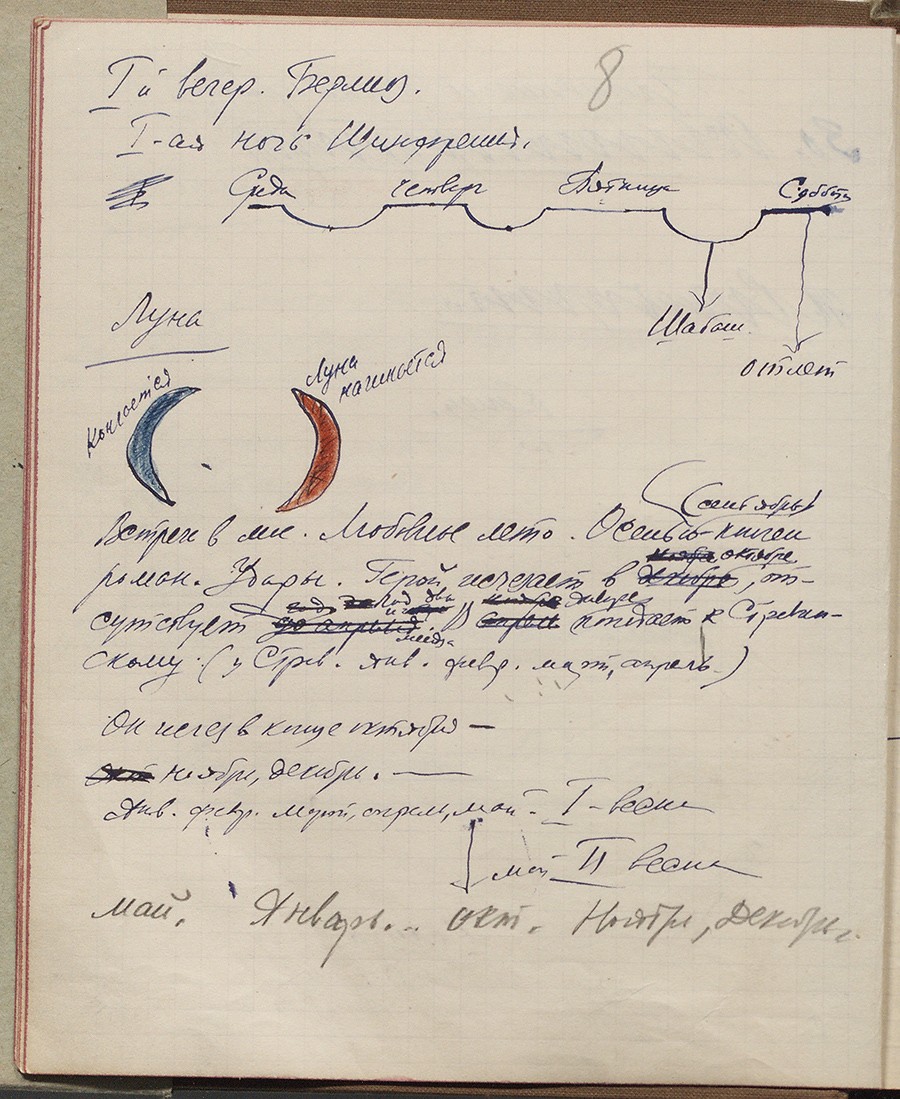 8
I й вечер. Берлиоз.
I-ая ночь Шиндрешия.
Среда Четверг Пятница Суббота
Шабаш.
отлет
Луна
Кончается
Луна
начинается
(сентябрь)
Встреча в мае. Любовное лето. Осенью – кинчен
ноября октябре
роман. Удары. Герой исчезает в декабре, от-
год два
ноябре декабре
сутствует до апреля. В апреле попадает к Стравин-
месяца
скому. (у Страв. янв. февр. март, апрель.)
Он исчез в конце октября —
окт ноябрь, декабрь. —
Янв. февр. март, апрель, май – I – весна
май II весна
май. Январь... окт. Ноябрь, Декабрь.